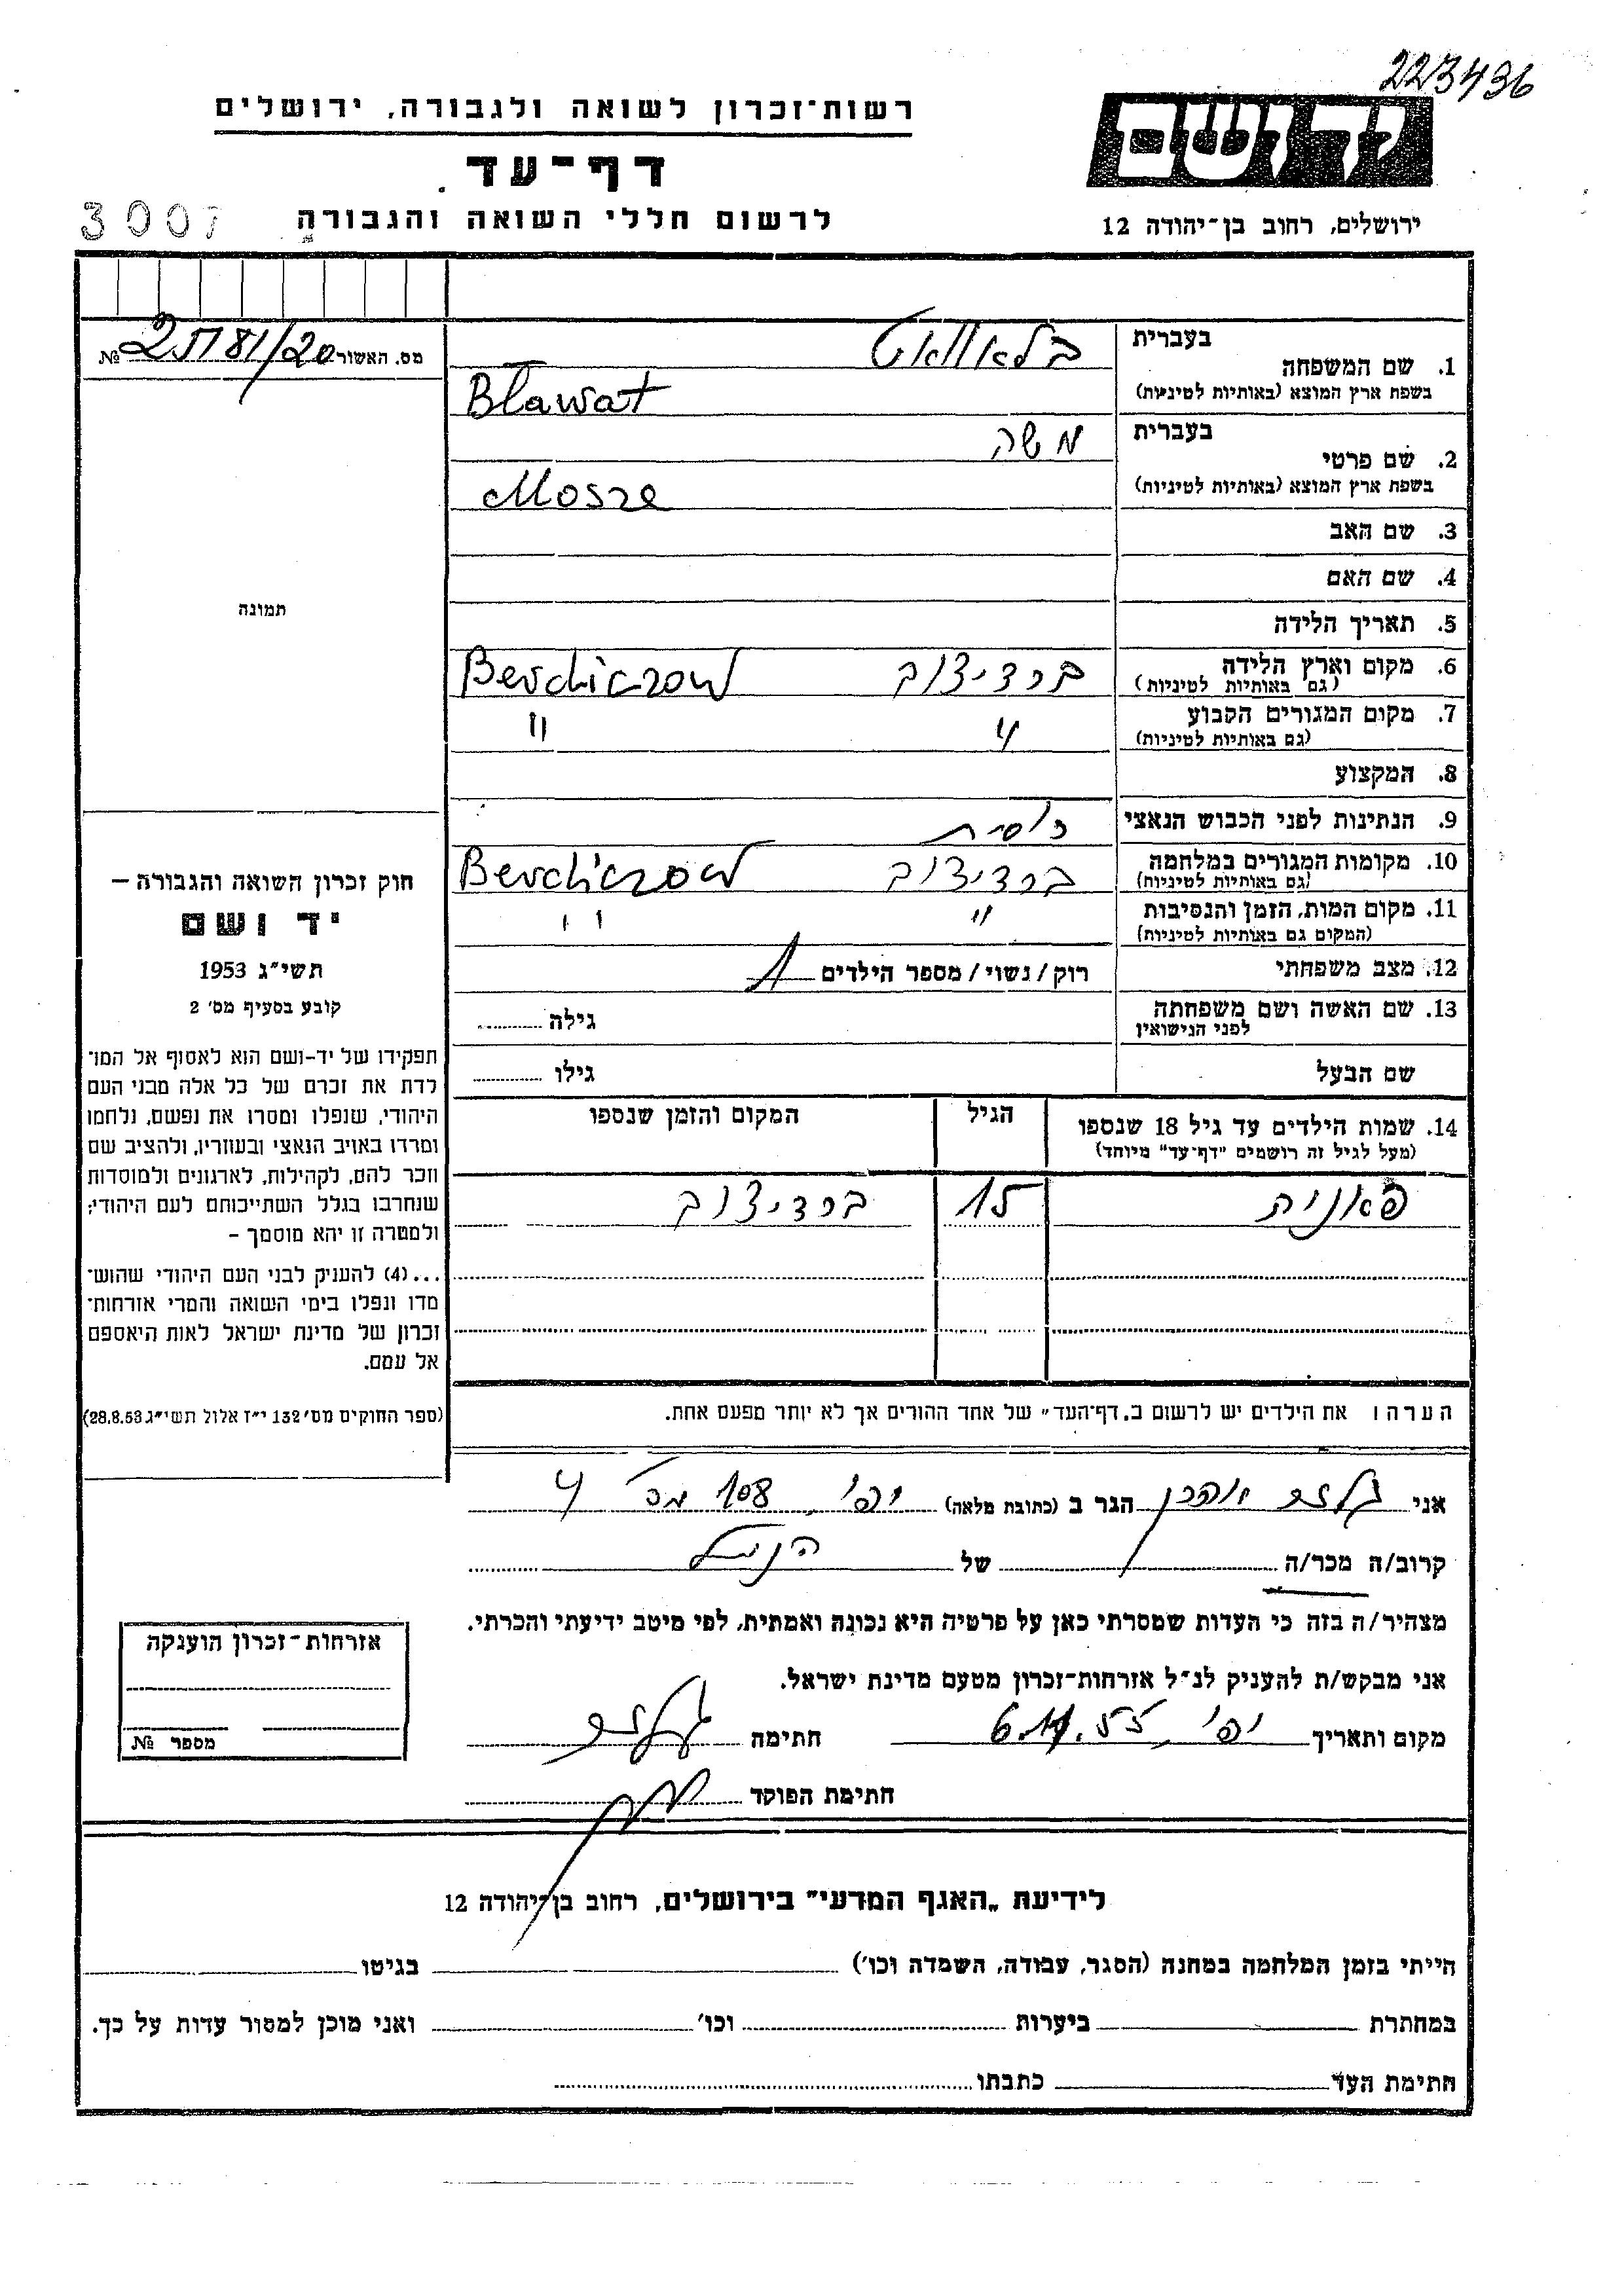 223436
רשות־זכרון לשואה ולגבורה, ירושלים
דף־עד
לרשום חללי השואה והגבורה
3007
ידושם
ירושלים, רחוב בן־יהודה 12
מס. האשור №
בעברית בלאוואט
1. שם המשפחה
בשפת ארץ המוצא (באותיות לטיניות) Bławat
בעברית משה
2. שם פרטי
בשפת ארץ המוצא (באותיות לטיניות) Mosze
3. שם האב
4. שם האם
5. תאריך הלידה
6. מקום וארץ הלידה ברדיצוב Berdiczow
(גם באותיות לטיניות)
7. מקום המגורים הקבוע " "
(גם באותיות לטיניות)
8. המקצוע
9. הנתינות לפני הכבוש הנאצי רוסית
10. מקומות המגורים במלחמה ברדיצוב Berdiczow
(גם באותיות לטיניות)
11. מקום המות, הזמן והנסיבות " "
(המקום גם באותיות לטיניות)
12. מצב משפחתי רוק/נשוי/מספר הילדים 1
13. שם האשה ושם משפחתה גילה
לפני הנישואין
שם הבעל גילו
14. שמות הילדים עד גיל 18 שנספו הגיל המקום והזמן שנספו
(מעל לגיל זה רושמים "דף־עד" מיוחד)
פאניה 15 ברדיצוב
הערה: את הילדים יש לרשום ב„דף־העד" של אחד ההורים אך לא יותר מפעם אחת.
תמונה
חוק זכרון השואה והגבורה –
יד ושם
תשי"ג 1953
קובע בסעיף מס' 2
תפקידו של יד-ושם הוא לאסוף אל המו־
לדת את זכרם של כל אלה מבני העם
היהודי, שנפלו ומסרו את נפשם, נלחמו
ומרדו באויב הנאצי ובעוזריו, ולהציב שם
וזכר להם, לקהילות, לארגונים ולמוסדות
שנחרבו בגלל השתייכותם לעם היהודי;
ולמטרה זו יהא מוסמך –
...(4) להעניק לבני העם היהודי שהוש־
מדו ונפלו בימי השואה והמרי אזרחות־
זכרון של מדינת ישראל לאות היאספם
אל עמם.
(ספר החוקים מס' 132 י"ז אלול תשי"ג 28.8.53)
אני הגר ב (כתובת מלאה) יפו, 108
קרוב/ה מכר/ה של הנ"ל
מצהיר/ה בזה כי העדות שמסרתי כאן על פרטיה היא נכונה ואמתית, לפי מיטב ידיעתי והכרתי.
אני מבקש/ת להעניק לנ"ל אזרחות־זכרון מטעם מדינת ישראל.
מקום ותאריך יפו, 6.11.55 חתימה
חתימת הפוקד
אזרחות־זכרון הוענקה
מספר №
לידיעת „האגף המדעי" בירושלים, רחוב בן־יהודה 12
הייתי בזמן המלחמה במחנה (הסגר, עבודה, השמדה וכו') בגיטו
במחתרת ביערות וכו' ואני מוכן למסור עדות על כך.
חתימת העד כתבתו